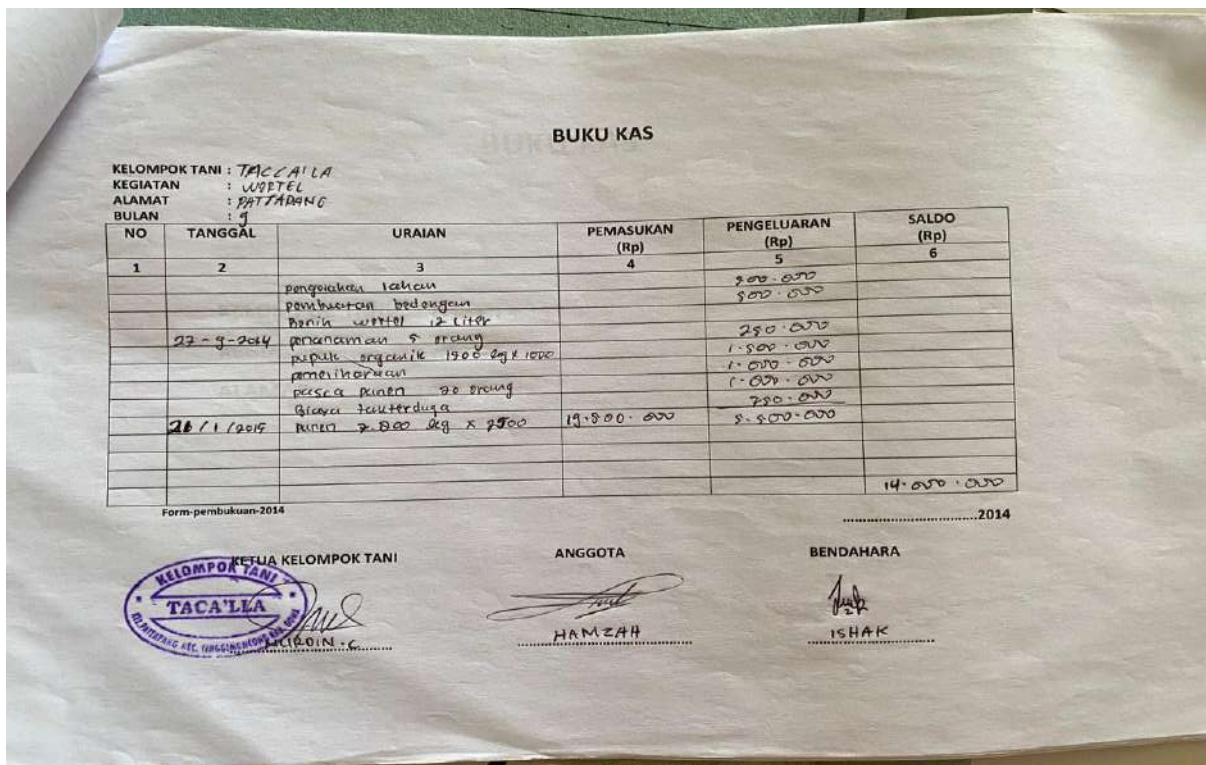 BUKU KAS
KELOMPOK TANI : TACCA'LLA
KEGIATAN : WORTEL
ALAMAT : PATTAPANG
BULAN : 9
NO TANGGAL URAIAN PEMASUKAN (Rp) PENGELUARAN (Rp) SALDO (Rp)
1 2 3 4 5 6
pengolahan lahan
pembuatan bedengan
Benih wortel 12 Liter
penanaman 5 orang 250.000
pupuk organik 1.500.000
pemeliharaan 1.000.000
pasca panen 20 orang 1.000.000
Biaya takterduga 250.000
panen 7.800 kg x 2500 19.500.000 5.500.000
14.000.000
Form-pembukuan-2014
2014
KETUA KELOMPOK TANI ANGGOTA BENDAHARA
KELOMPOK TANI
TACA'LLA
HAMZAH ISHAK